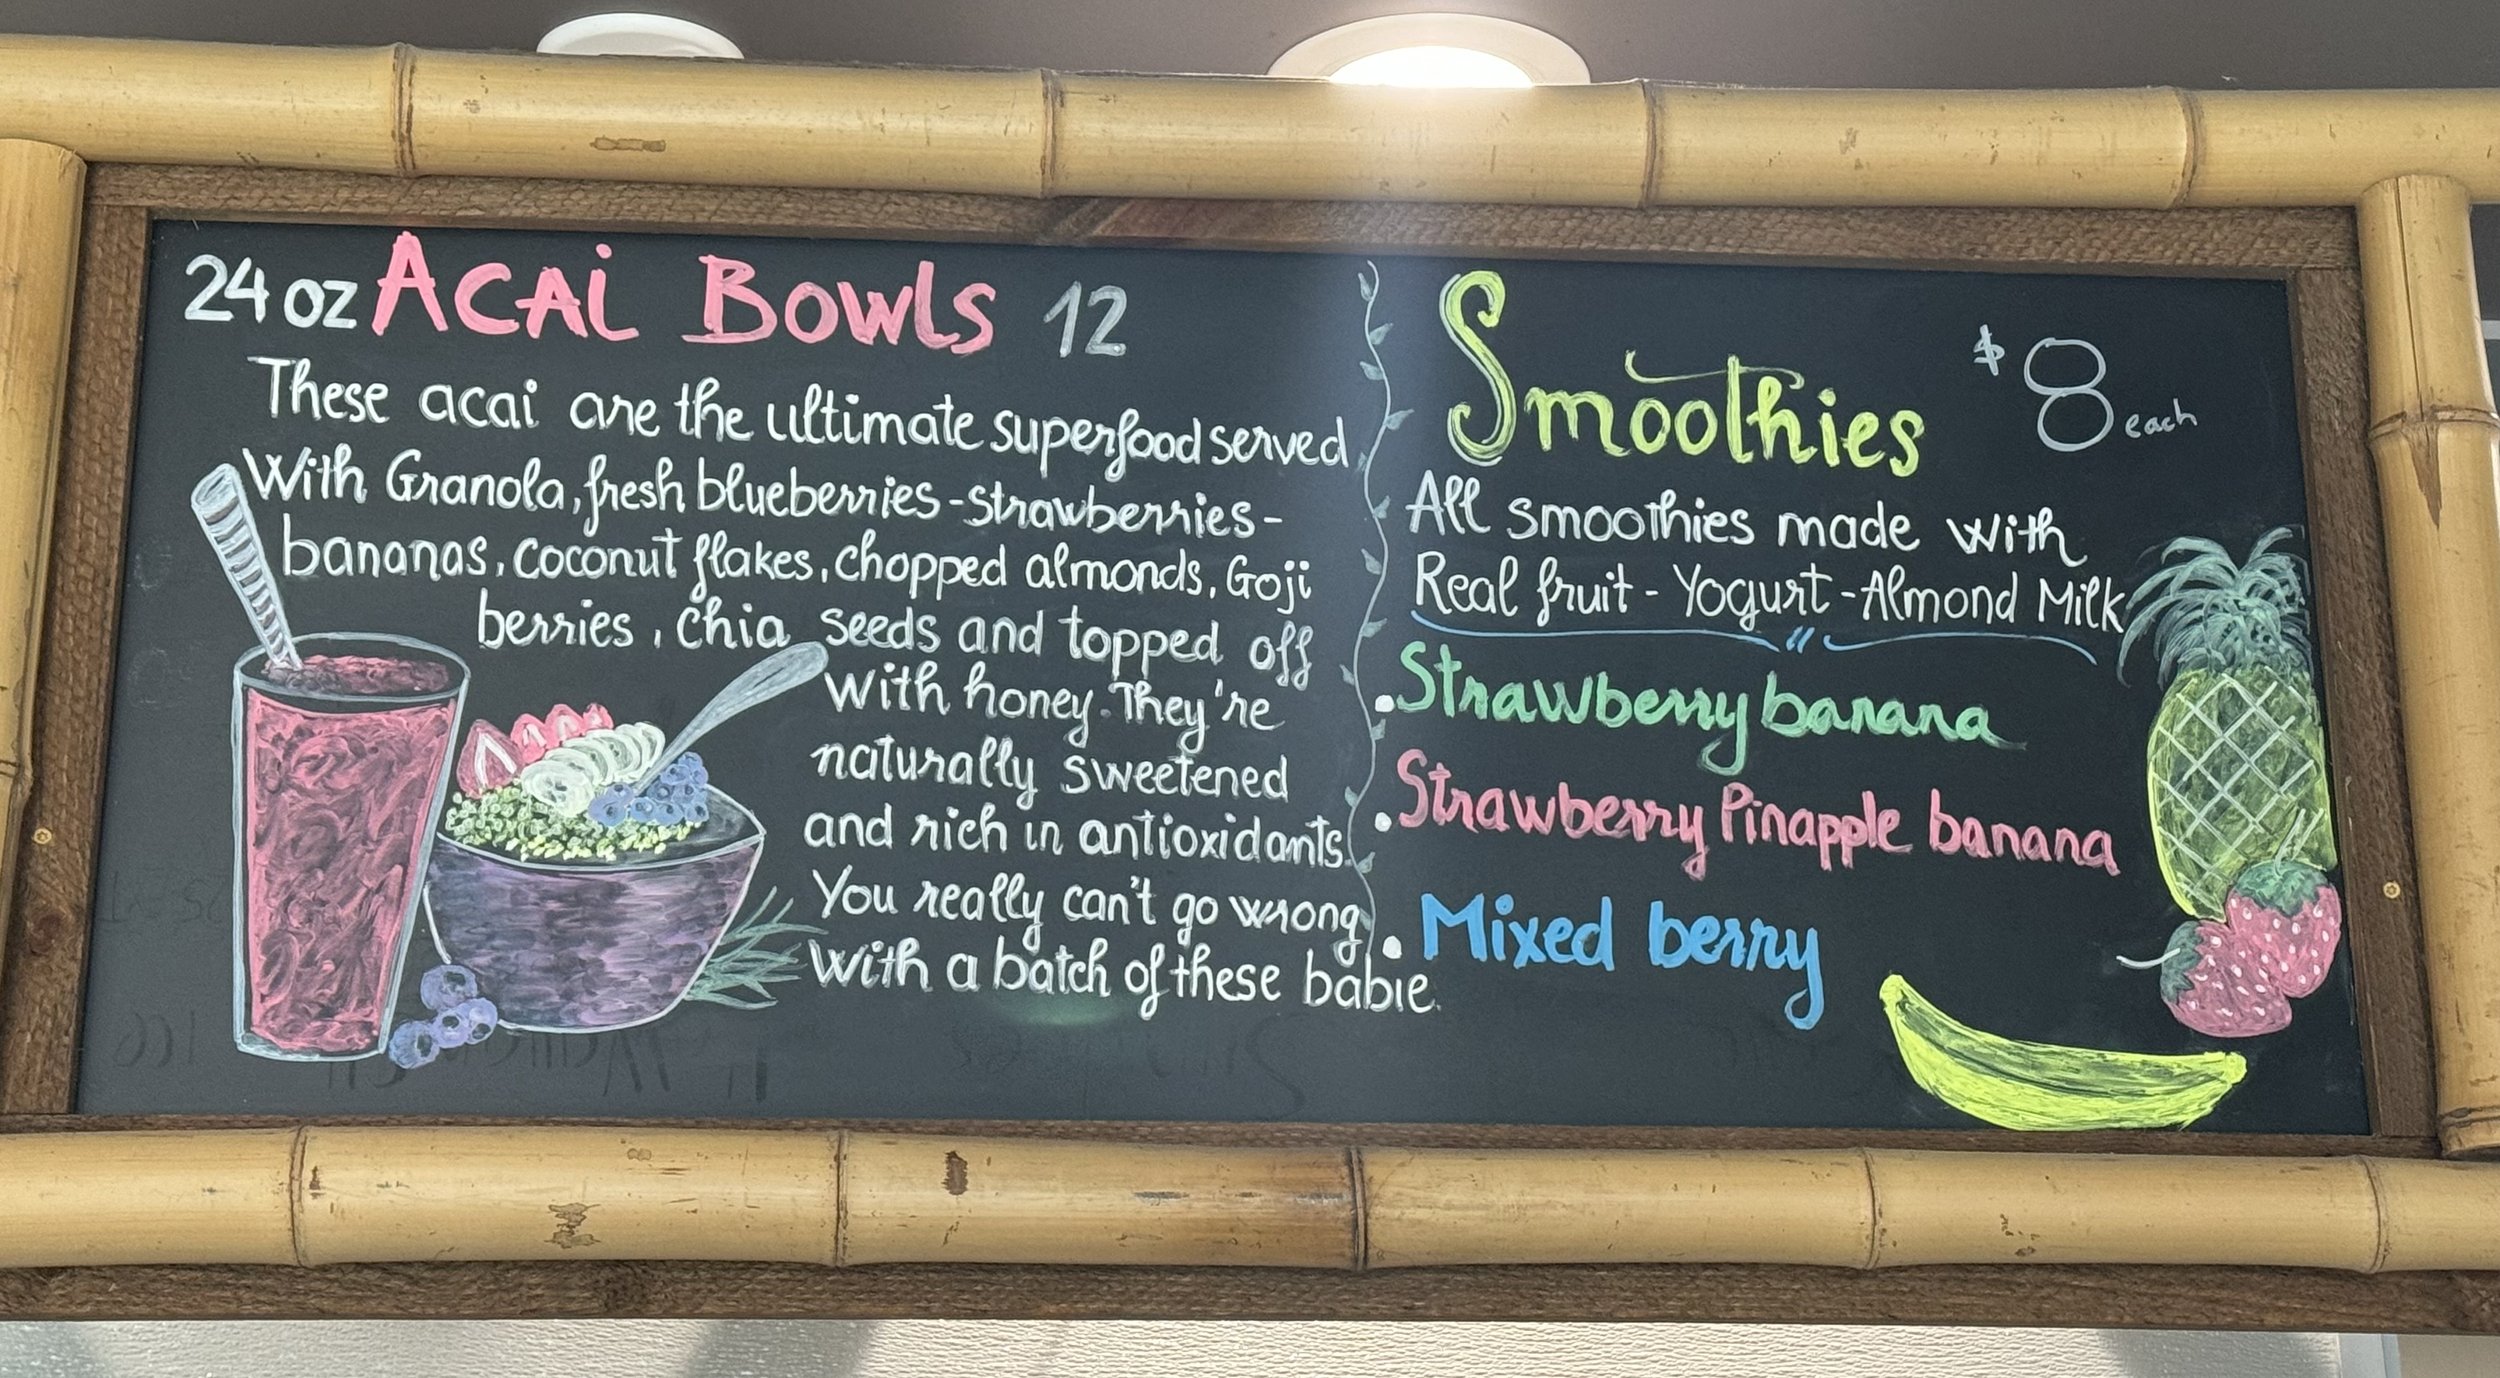 24 oz ACAi BOWLS 12
These acai are the ultimate superfood served
With Granola, fresh blueberries - strawberries -
bananas, coconut flakes, chopped almonds, Goji
berries, chia seeds and topped off
with honey. They're
naturally sweetened
and rich in antioxidants.
You really can't go wrong
With a batch of these babie.
Smoothies $8 each
All smoothies made with
Real fruit - Yogurt - Almond Milk
• Strawberry banana
• Strawberry Pinapple banana
• Mixed berry